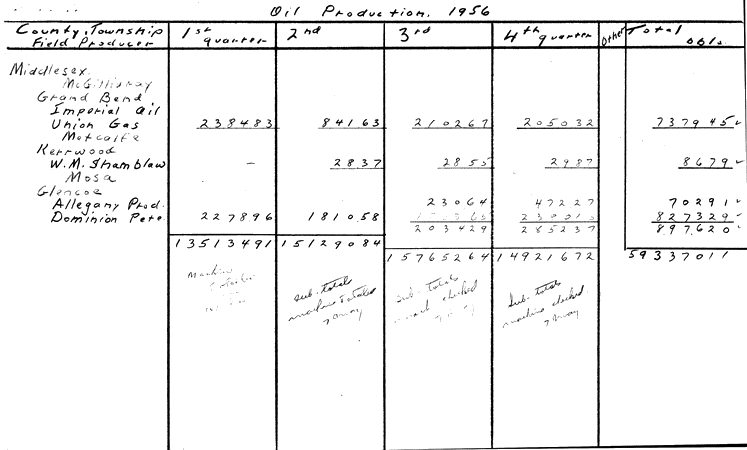 Oil Production, 1956
County, Township Field Producer 1st quarter 2nd 3rd 4th quarter Other Total bbls.
Middlesex
McGillivray
Grand Bend
Imperial Oil
Union Gas 238483 84163 210267 205032 737945
Metcalfe
Kerrwood
W.M. Shamblaw - 2837 2855 2987 8679
Mosa
Glencoe
Allegany Prod. 23064 47227 70291
Dominion Pete 227896 181058 827329
203429 285237 897620
13513491 15129084 15765264 14921672 59337011
machine
sub-totals sub-totals sub-totals
machine totaled checked machine checked
7 May 7 May